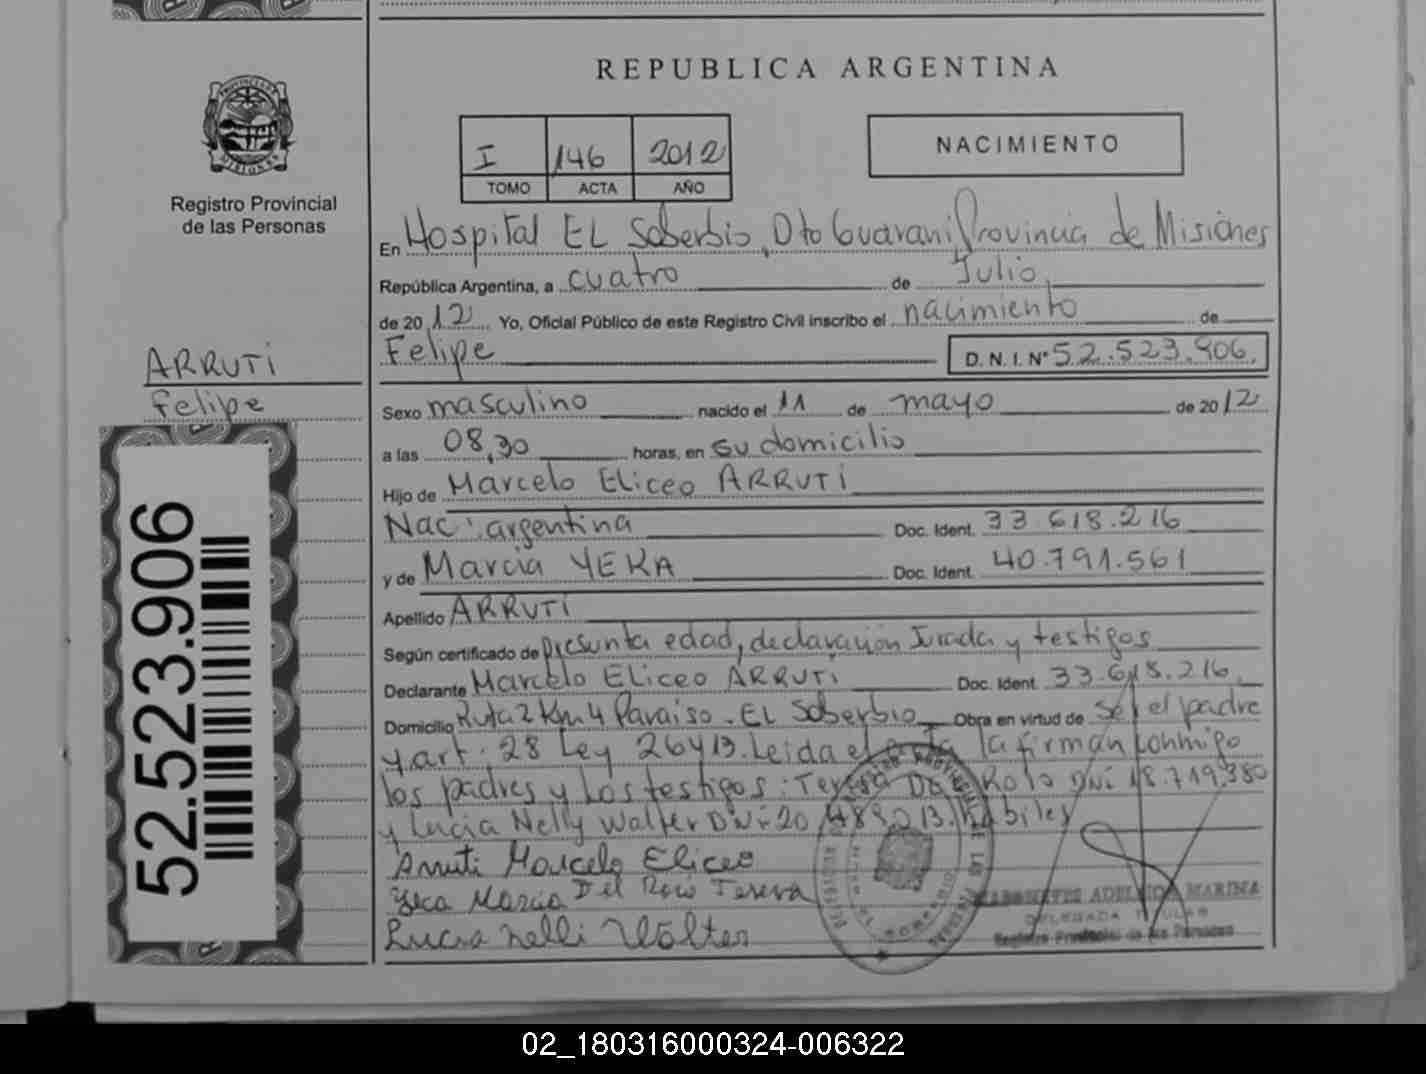 REPUBLICA ARGENTINA
PROVINCIA DE
MISIONES
Registro Provincial
de las Personas
I 146 2012
TOMO ACTA AÑO
NACIMIENTO
En Hospital EL Soberbio, Dto Guarani Provincia de Misiones
República Argentina, a cuatro de Julio
de 2012 Yo, Oficial Público de este Registro Civil inscribo el nacimiento de
Felipe D. N. I. Nº 52.523.906
ARRUTI
Felipe
Sexo masculino nacido el 11 de mayo de 2012
a las 08,30 horas, en su domicilio
Hijo de Marcelo Eliceo ARRUTI
Nac: argentina Doc. Ident. 33.618.216
y de Marcia YEKA Doc. Ident. 40.791.561
Apellido ARRUTI
Según certificado de presunta edad, declaración Jurada y testigos
Declarante Marcelo Eliceo ARRUTI Doc. Ident. 33.618.216
Domicilio Ruta 2 Km 4 Paraiso - EL Soberbio Obra en virtud de ser el padre
y art. 28 Ley 26413. Leida el acta la firman conmigo
los padres y los testigos: Teresa Del Rosio DNI 18.719.380
y Lucia Nelly Walter DNI 20.489.013. habiles
Arruti Marcelo Eliceo
Yeca Marcia Del Rocio Teresa
Lucia Nelli Walter
ADELAIDA MARINA
DELEGADA TITULAR
Registro Provincial de las Personas
52.523.906
02_180316000324-006322